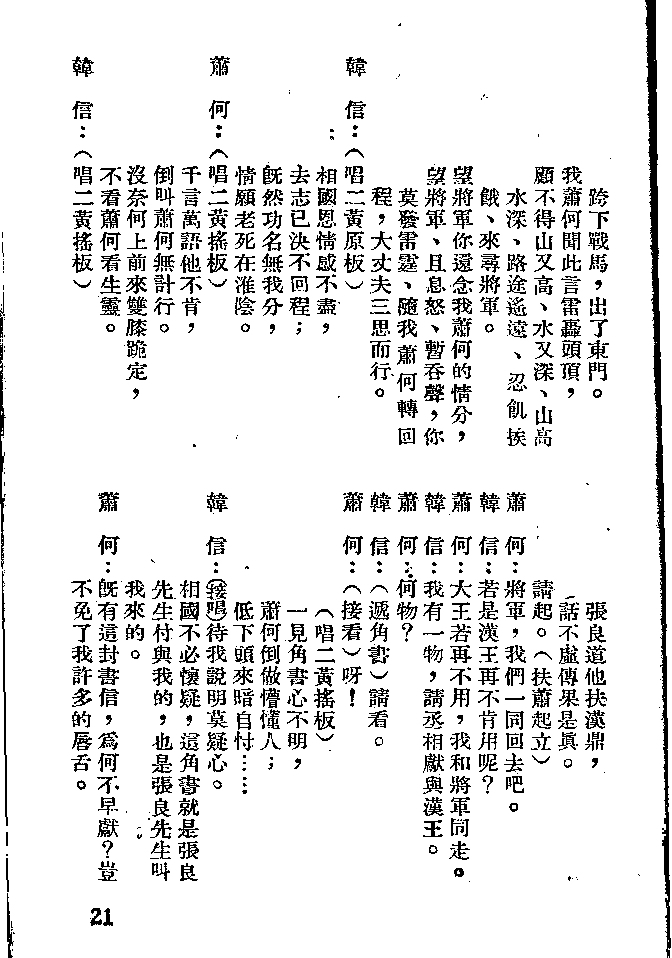 跨下戰馬，出了東門。
我蕭何聞此言雷轟頭頂，
顧不得山又高、水又深、山高
水深、路途遙遠、忍飢挨
餓、來尋將軍。
望將軍你還念我蕭何的情分，
望將軍、且息怒、暫吞聲，你
莫發雷霆、隨我蕭何轉回
程，大丈夫三思而行。
韓　信：（唱二黃原板）
相國恩情感不盡，
去志已決不回程；
旣然功名無我分，
情願老死在淮陰。
蕭　何：（唱二黃搖板）
千言萬語他不肯，
倒叫蕭何無計行。
沒奈何上前來雙膝跪定，
不看蕭何看生靈。
韓　信：（唱二黃搖板）
張良道他扶漢鼎，
話不虛傳果是眞。
請起。（扶蕭起立）
蕭　何：將軍，我們一同回去吧。
韓　信：若是漢王再不肯用呢？
蕭　何：大王若再不用，我和將軍同走。
韓　信：我有一物，請丞相獻與漢王。
蕭　何：何物？
韓　信：（遞角書）請看。
蕭　何：（接看）呀！
（唱二黃搖板）
一見角書心不明，
蕭何倒做懵懂人；
低下頭來暗自忖……
韓　信：（接唱）待我說明莫疑心。
相國不必懷疑，這角書就是張良
先生付與我的，也是張良先生叫
我來的。
蕭　何：旣有這封書信，爲何不早獻？豈
不免了我許多的唇舌。
21